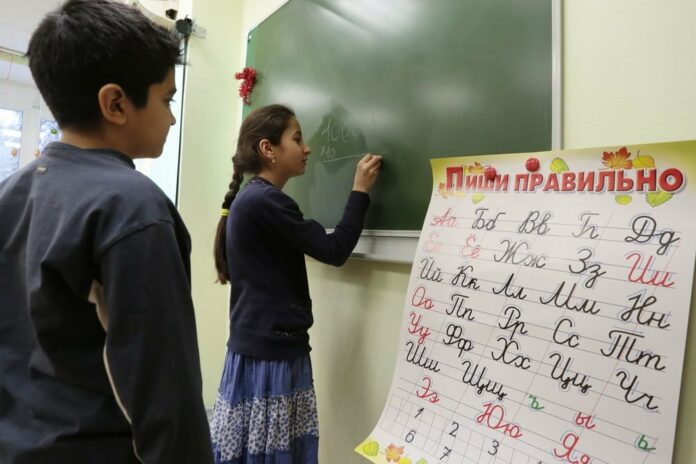 Пиши правильно
Аа Бб Вв Гг Дд
Ее Ёё Жж Зз Ии
Йй Кк Лл Мм Нн
Оо Пп Рр Сс Тт
Уу Фф Хх Цц Чч
Шш Щщ ъ ы ь
Ээ Юю Яя
1 2 3
6 7